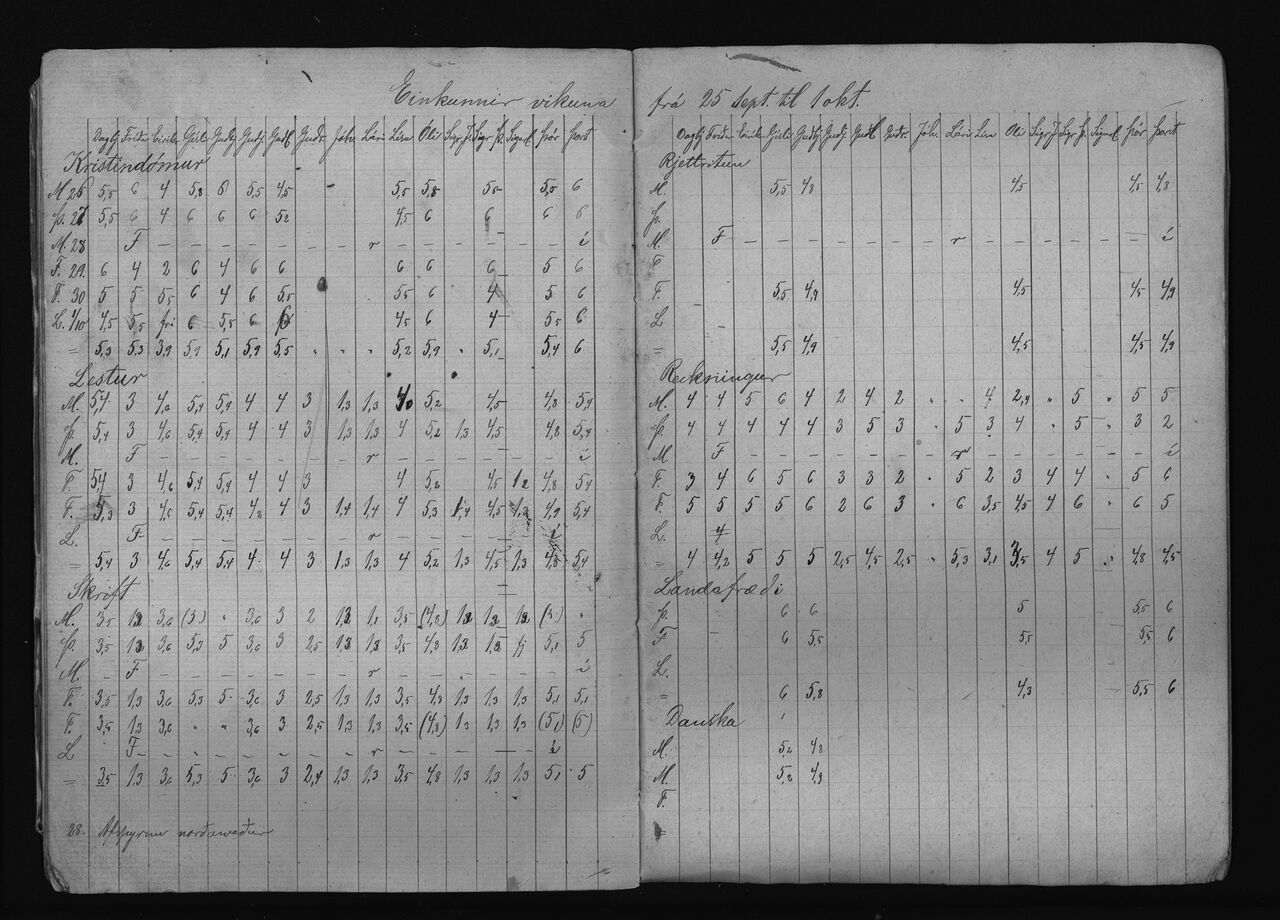 Einkunnir vikuna
Kristindómur
M. 26 5,5 6 4 5,8 6 5,5 4,5 5,5 5,8 5,5 5,5 6
Þ. 27 5,5 6 4 6 6 6 5,2 4,5 6 6 6 6
M. 28 F – – – – – – – r – – – – – – i
F. 29 6 4 2 6 4 6 6 6 6 6 5 6
F. 30 5 5 5,5 6 4 6 5,5 5,5 6 4 5 6
L. 1/10 4,5 5,5 frí 6 5,5 6 6 4,5 6 4 5,5 6
= 5,3 5,3 3,9 5,9 5,1 5,9 5,5 " " " 5,2 5,9 " 5,1 5,4 6
Lestur
M. 5,4 3 4,6 5,4 5,4 4 4 3 1,3 1,3 4,0 5,2 4,5 4,8 5,4
Þ. 5,4 3 4,6 5,4 5,4 4 4 3 1,3 1,3 4 5,2 1,3 4,5 4,8 5,4
M. – F – – – – – – – r – – – – – – i
F. 5,4 3 4,6 5,4 5,4 4 4 3 4 5,2 4,5 1,2 4,8 5,4
F. 5,3 3 4,6 5,4 5,4 4,2 4 3 1,4 1,4 4 5,3 1,4 4,5 1,3 4,9 5,4
L. F – – – – – – – r – – – – – i
= 5,4 3 4,6 5,4 5,4 4 4 3 1,3 1,3 4 5,2 1,3 4,5 1,3 4,8 5,4
Skrift
M. 3,5 1,3 3,6 (3) " 3,6 3 2 1,3 1,1 3,5 (4,8) 1,3 1,3 1,3
Þ. 3,5 1,3 3,6 5,3 5 3,6 3 2,5 1,3 1,3 3,5 4,8 1,3 1,3 5,1 5
M. – F – – – – – – – r – – – – – – i
F. 3,5 1,3 3,6 5,3 5 3,6 3 2,5 1,3 1,3 3,5 4,8 1,3 1,3 1,3 5,1 5,1
F. 3,5 1,3 3,6 " " 3,6 3 2,5 1,3 1,3 3,5 (4,8) 1,3 1,3 1,3 (5,1) (5)
L F – – – – – – – r – – – – – i
= 3,5 1,3 3,6 5,3 5 3,6 3 2,4 1,3 1,3 3,5 4,8 1,3 1,3 1,3 5,1 5
28. norðanveður
frá 25 sept. til 1 okt.
Rjettritun
M. 5,5 4,8 4,5 4,5 4,8
Þ.
M. F – – – – – – – r – – – – – – i
F
F. 5,5 4,9 4,5 4,5 4,9
L
= 5,5 4,9 4,5 4,5 4,9
Reikningur
M. 4 4 5 6 4 2 4 2 " " 4 2,9 " 5 " 5 5
Þ. 4 4 4 4 4 3 5 3 " 5 3 4 " 5 " 3 2
M. F – – – – – – – r – – – – – – i
F. 3 4 6 5 6 3 3 2 " 5 2 3 4 4 " 5 6
F. 5 5 5 5 6 2 6 3 " 6 3,5 4,5 4 6 " 6 5
L. 4
= 4 4,2 5 5 5 2,5 4,5 2,5 " 5,3 3,1 3,5 4 5 " 4,8 4,5
Landafræði
Þ. 6 6 5 5,5 6
F 6 5,5 5,5 5,5 6
L.
= 6 5,8 4,3 5,5 6
Danska
M. 5,2 4,8
M. 5,2 4,9
F.
=